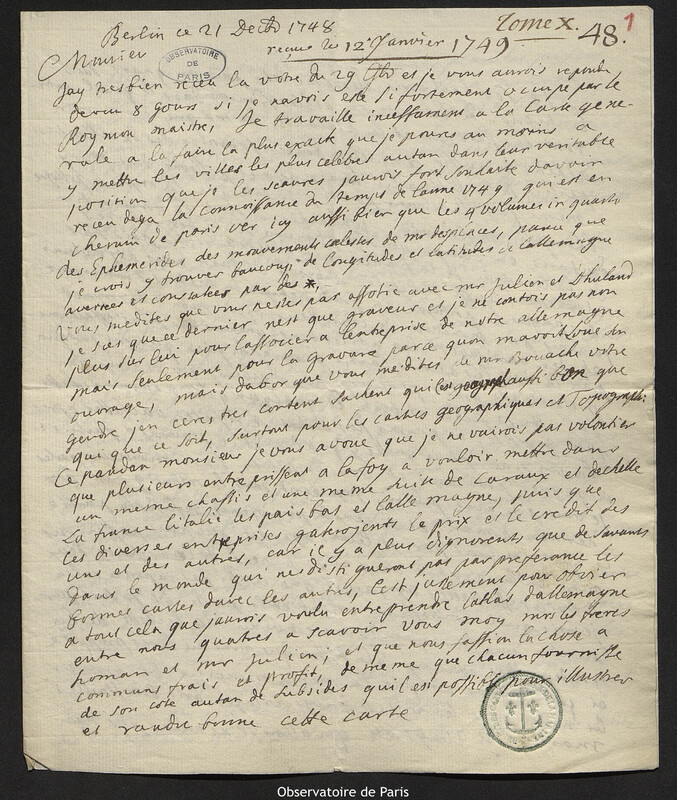 Tome X. 48. 1
Berlin ce 21 Decbr 1748
reçue le 12e Janvier 1749
OBSERVATOIRE DE PARIS
Monsieur
Jay tres bien receu la votre du 29 et je vous aurois repondu
devan 8 jours si je navois esté si fortement ocupé par le
Roy mon maistre, Je travaille incessament a la Carte gene-
rale a la faire la plus exacte que je poures au moins a
y mettre les villes les plus celebre autan dans leur veritable
position que je les scaures jauvois fort souhaité davoir
receu deja la Connoissance du temps de lanne 1749 qui est en
chemin de paris ver icy aussi bien que les 4 volumes in quarto
des Ephemerides des mouvements celestes de mr desplaces, parce que
je crois y trouver baucoup de Longitudes et latitudes de lallemagne
averées et constatées par des *,
Vous medites que vous nestes pas assotié avec mr Julien et Dhuland
je scès que ce dernier nest que graveur et je ne contois pas non
plus sur lui pour lassocier a lentreprise de notre allemagne
mais seulement pour la gravure parce quon mavoit loué son
ouvrage, mais dabor que vous me dites de mr Bouache votre
gendre jen ceres tres content sachent quil est aussi bon que
qui que ce soit, surtout pour les cartes geographiques et Topographi:
Ce pandan monsieur je vous avoue que je ne vairois pas volontier
que plusieurs entreprissent a la foy a vouloir mettre dans
un meme chassis et une meme suite de caraux et dechelle
La france litalie les pais bas et lalle magne, puis que
Ces diverses entreprises le prix et le credit des
uns et des autres, car il y a plus dignorents que de savants
dans le monde qui ne distigueront pas par preferance les
bonnes cartes davec les autres, Cest justement pour obvier
a tout cela que jaurois voulu entreprendre latlas dallemagne
entre nous quatres a scavoir vous moy mrs les freres
homan et mr Julien; et que nous fassion la chose a
communs frais et profit, de meme que chacun fournisse
de son coté autan de subsides quil est possible pour illustrer
et randre bonne cette carte
Observatoire de Paris